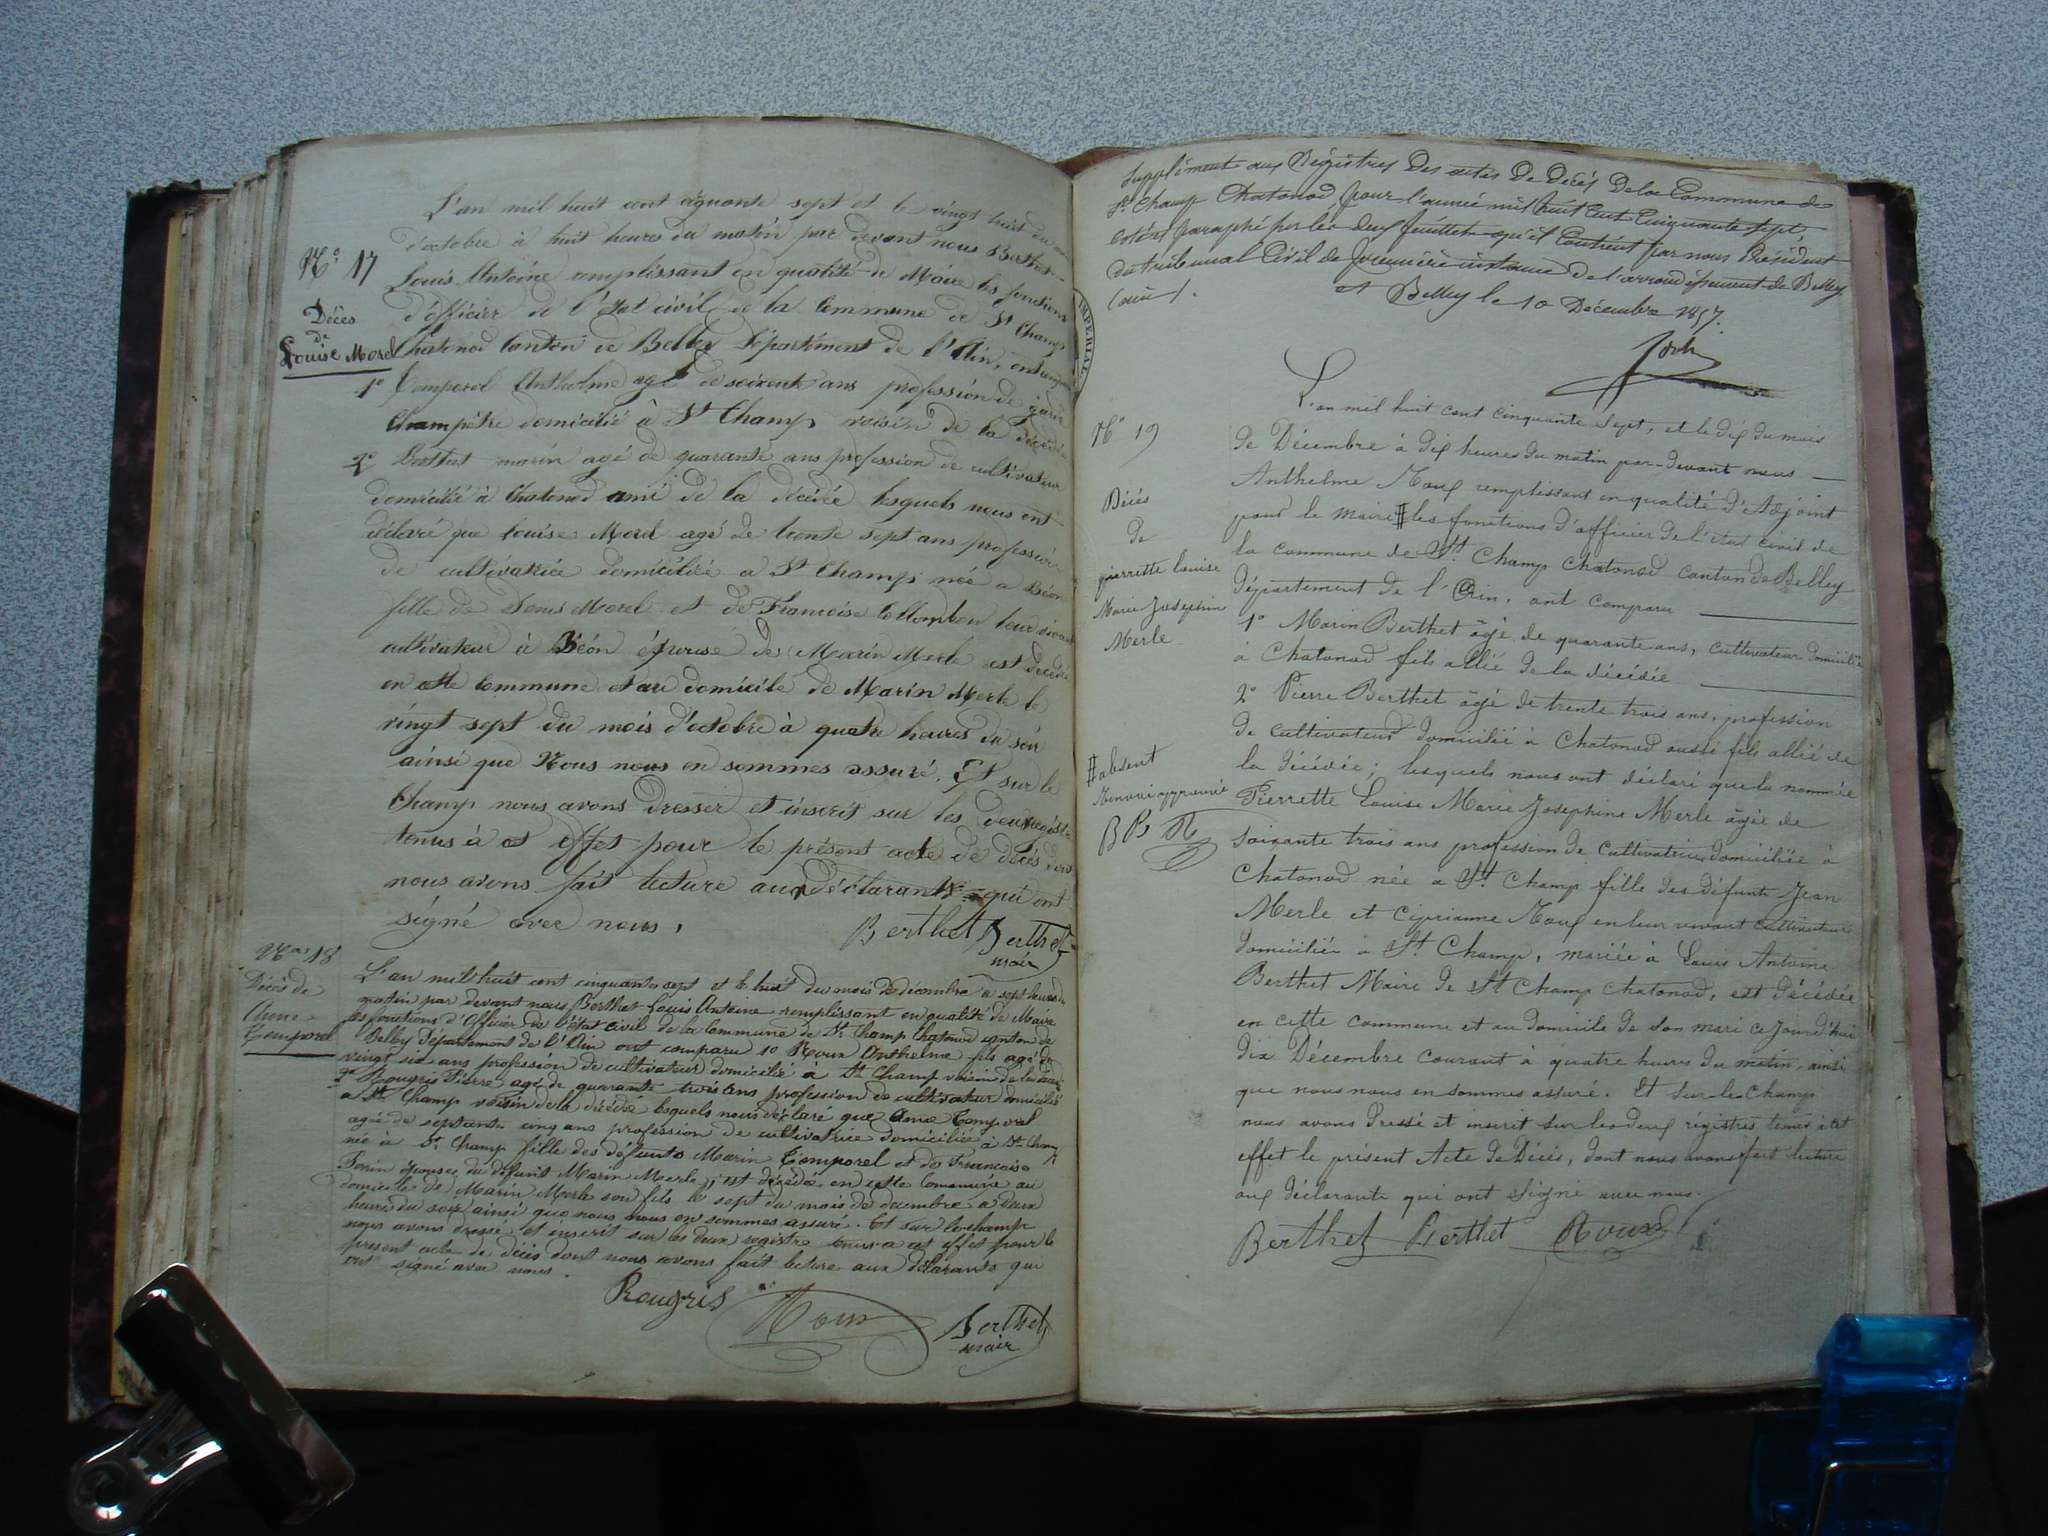 L'an mil huit cent cinquante sept et le vingt huit du mois
d'octobre à huit heures du matin par devant nous Berthet
Louis Antoine remplissant en qualité de Maire les fonctions
d'officier de l'Etat civil de la Commune de St Champ
Chatonod Canton de Belley Département de l'Ain, ont comparu
1º Temporel Anthelme agé de soixente ans profession de garde
Champêtre domicilié à St Champ voisin de la décédée
2º Berthet marin agé de quarante ans profession de cultivateur
domicilié à Chatonod ami de la décédée lesquels nous ont
déclaré que Louise Morel agé de trente sept ans profession
de cultivatrice domiciliée a St Champ née a Béon
fille de Denis Morel et de Francoise Collomb en leur vivant
cultivateur à Béon épouse de Marin Merle est décédée
en cette Commune et au domicile de Marin Merle le
vingt sept du mois d'octobre à quatre heures du soir
ainsi que Nous nous en sommes assuré. Et sur le
Champ nous avons dresser et inscrit sur les deux registres
tenus à cet effet pour le présent acte de décés dont
nous avons fait lecture aux déclarants qui ont
signé avec nous.
Berthet Berthet
mair
Nº 17
Décès
de
Louise Morel
Nº 18
Décès de
Anne
Temporel
L'an mil huit cent cinquante sept et le huit du mois de décembre a sept heures du
matin par devant nous Berthet Louis Antoine remplissant en qualité de Maire
les fonctions d'Officier de l'état civil de la Commune de St Champ Chatonod canton de
Belley Département de l'Ain ont comparu 1º Roux Anthelme fils agé de
vingt six ans profession de cultivateur domicilié à St Champ voisin de la décédée
2º Rougris Pierre agé de quarante trois ans profession de cultivateur domicilié
a St Champ voisin de la décédée lesquels nous déclaré que Anne Temporel
agée de septante cinq ans profession de cultivatrice domiciliée à St Champ
née à St Champ fille des défunts Marin Temporel et de Francoise
Perrin épouse du défunt Marin Merle, est décédée en cette Commune au
domicile de Marin Merle son fils le sept du mois de decembre a deux
heure du soir ainsi que nous nous en sommes assuré. Et sur le champ
nous avons dressé et inscrit sur les deux registre tenus a cet effet pour le
present acte de décès dont nous avons fait lecture aux déclarants qui
ont signé avec nous.
Rougris Roux Berthet
mair
IMPERIAL
Supplément aux Régistres Des actes De Décès De la Commune de
St Champ Chatonod pour l'année mil huit Cent Cinquante sept,
coté et paraphé sur les deux feuillets qu'il Contient par nous Président
du tribunal Civil de première instance de l'arrondissement de Belley
(ain).
à Belley le 10 Décembre 1857.
Nº 19
Décès
de
pierrette Louise
Marie Josephine
Merle
L'an mil huit cent cinquante sept, et le dix du mois
de Décembre à dix heures du matin par-devant nous
Anthelme Roux remplissant en qualité d'Adjoint
pour le maire # les fonctions d'officier de l'état civil de
la commune de St Champ Chatonod canton de Belley
département de l'Ain, ont comparu
1º Marin Berthet âgé de quarante ans, cultivateur domicilié
à Chatonod fils allié de la décédée
2º Pierre Berthet âgé de trente trois ans, profession
de cultivateur domicilié à Chatonod aussi fils allié de
la décédée; lesquels nous ont déclaré que la nommée
Pierrette Louise Marie Josephine Merle âgée de
soixante trois ans profession de cultivatrice domiciliée à
Chatonod née a St Champ fille des défunts Jean
Merle et Ciprianne Roux en leur vivant cultivateurs
domiciliés à St Champ, mariée à Louis Antoine
Berthet Maire de St Champ Chatonod, est décédée
en cette commune et au domicile de son mari ce jourd'hui
dix Décembre courant à quatre heures du matin, ainsi
que nous nous en sommes assuré. Et sur-le-champ
nous avons dressé et inscrit sur les deux régistres tenus à cet
effet le présent Acte de Décès, dont nous avons fait lecture
aux déclarants qui ont signé avec nous.
Berthet Berthet Roux
# absent
Renvoi approuvé
B B R